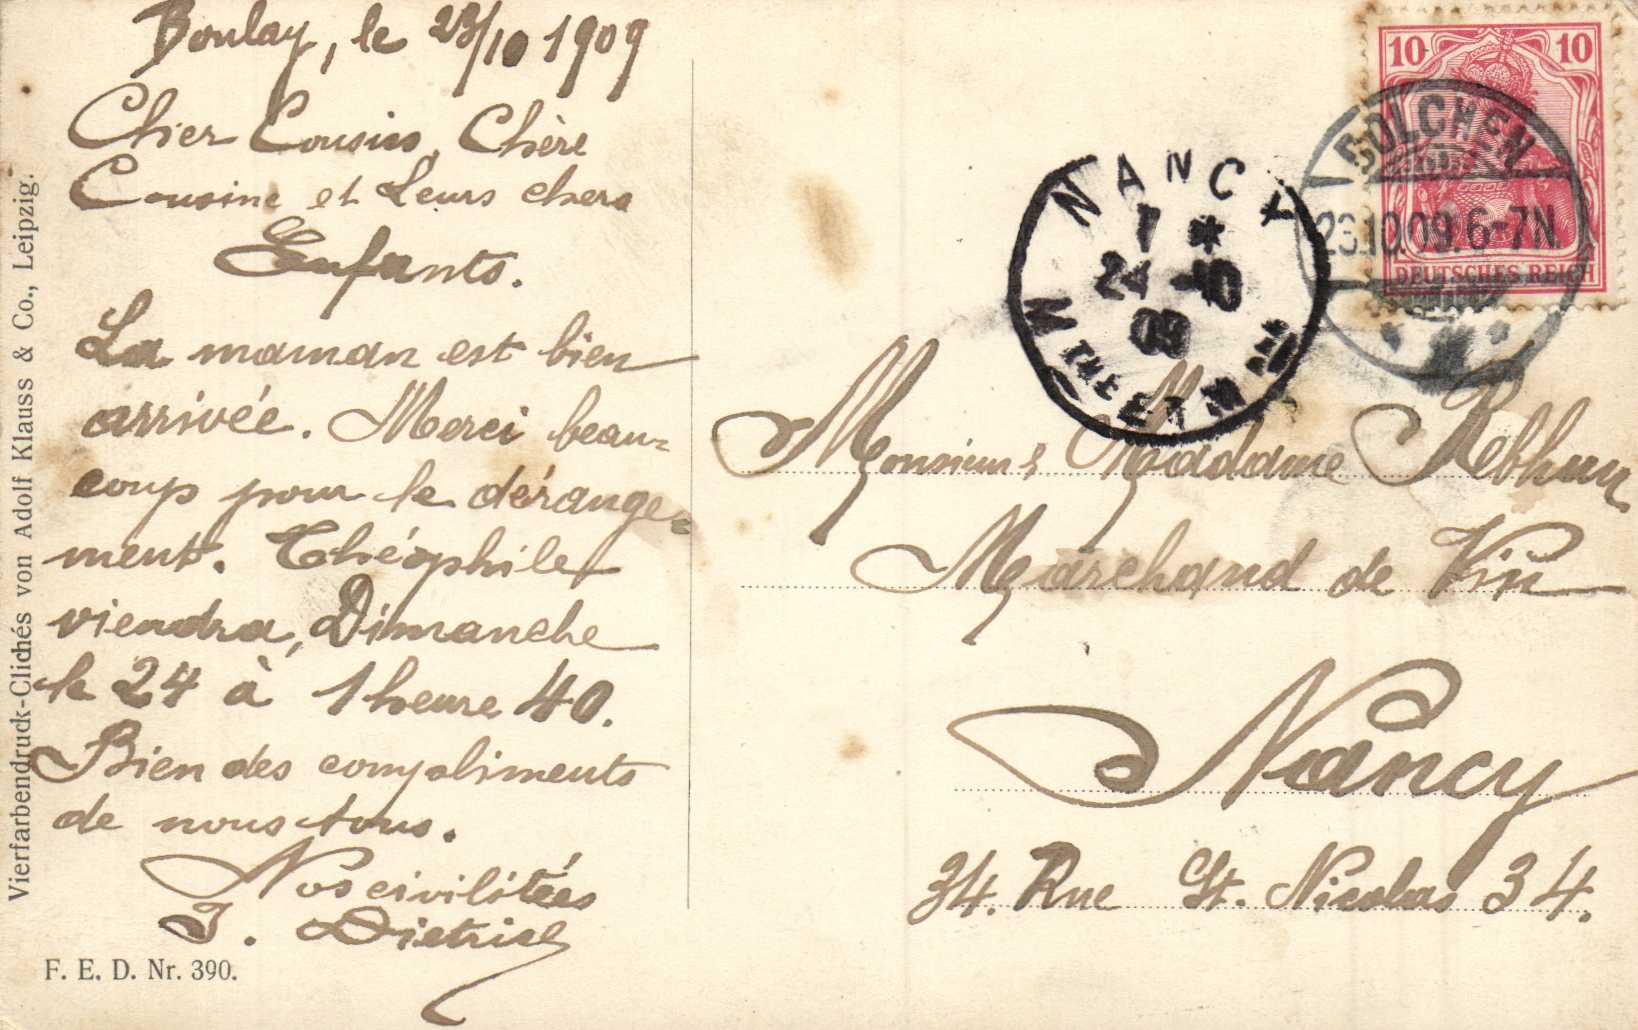 Boulay, le 23/10 1909
Cher Cousin, Chère
Cousine et Leurs chers
Enfants.
La maman est bien
arrivée. Merci beau=
coup pour le dérange=
ment. Théophile
viendra, Dimanche
le 24 à 1 heure 40.
Bien des compliments
de nous tous.
Nos civilitées
J. Dietrich
F. E. D. Nr. 390.
Vierfarbendruck-Clichés von Adolf Klauss & Co., Leipzig.
10 10
DEUTSCHES REICH
BOLCHEN
23.10.09.6-7N.
NANCY
1 *
24 -10
09
MTHE ET M
Monsieur & Madame Rebhun
Marchand de Vin
Nancy
34. Rue St. Nicolas 34.